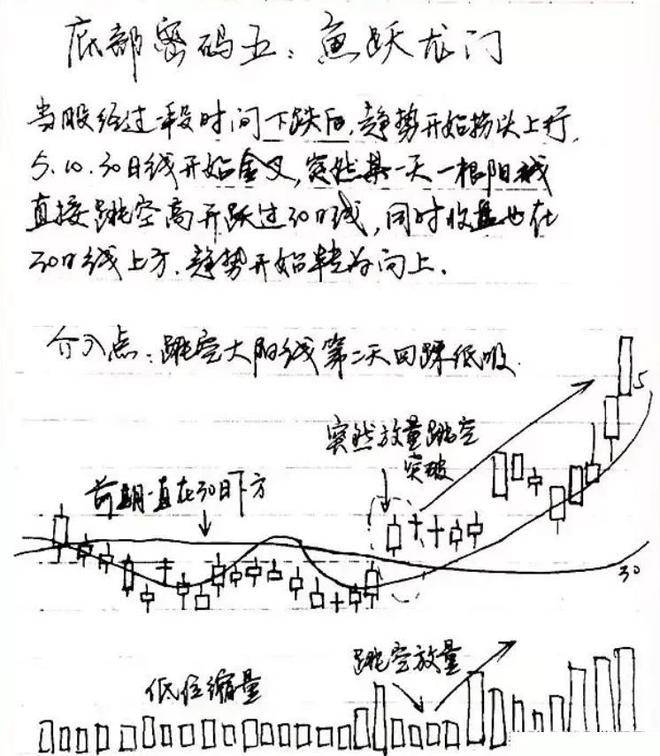 底部密码五:鱼跃龙门
当股经过一段时间下跌后,趋势开始拐头上行,
5.10.30日线开始金叉,突然某一天一根阳线
直接跳空高开跃过30日线,同时收盘也在
30日线上方.趋势开始转为向上。
介入点:跳空大阳线第二天回踩低吸.
5
突然放量跳空
突破
前期一直在30日下方
30
跳空放量
低位缩量